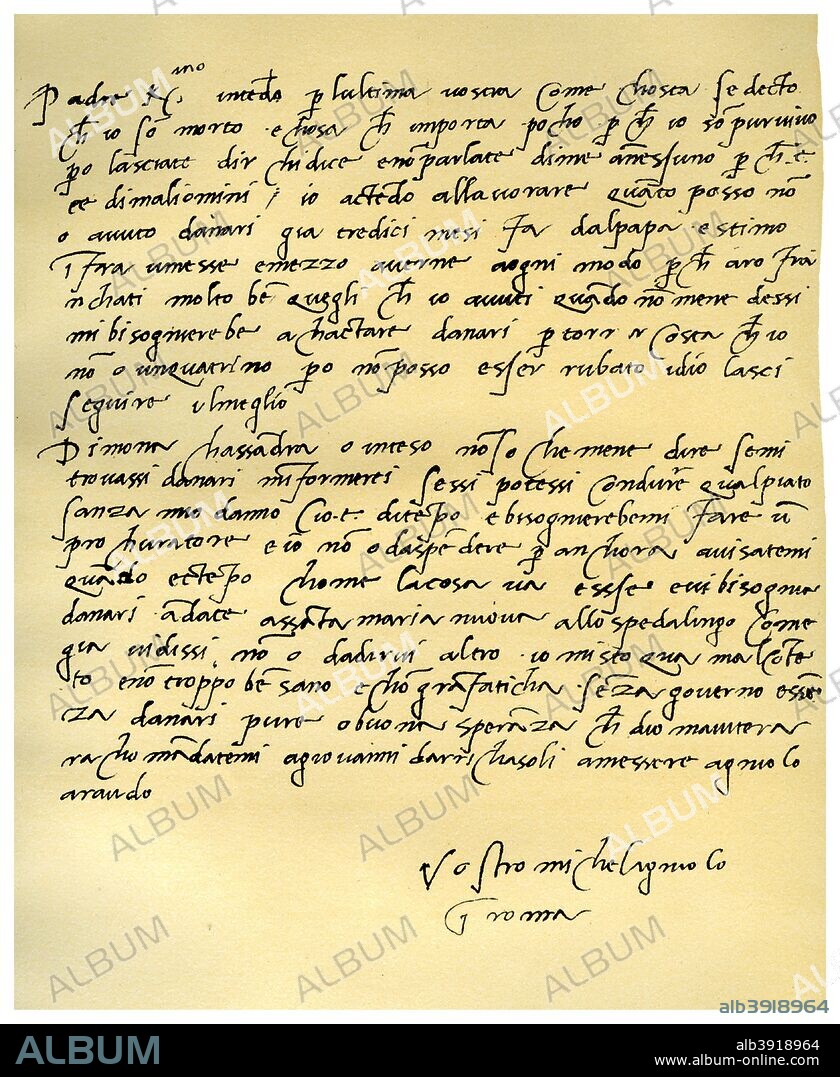 Padre K͞r.mo intedo p̱ lultima vostra come chosta se decto
ch̄ io sō morto · e chosa ch̄ importa pocho p̱ ch̄ io sō pur vivo
p̱o lasciate dir chi dice e nō parlate di me a nessuno p̱ ch̄ · e ·
ce di mali omini / io actēdo a llavorare quāto posso nō
o avuto danari gia tredici mesi fa dal papa e stimo
ī fra u messe e mezzo averne a ogni modo p̱ ch̄ aro fra
nchati molto bē quegli ch̄ io avuti quādo nō me ne dessi
mi bisogniere be achactare danari p̱ torr costa ch̄ io
nō o un quatrino p̱o nō posso esser rubato idio lasci
seguire il meglio
Di mona chassādra o inteso nō so che mene dire se mi
trovassi danari minformerei se ssi potessi cōdurre qua lpiato
sanza mio danno cio · e · di tēpo e bisogniere be mi fare ū
prochuratore e io nō o da spēdere p̱ anchora avisatemi
quādo e ctēpo chome la cosa va e sse e vi bisognia
danari ādate a ssāta maria nuova allo spedalingo come
gia vi dissi nō o da dirvi altro io mi sto qua mal cōte
to e nō troppo bē sano e chō grā faticha sēza governo e sse
za danari pure o buona sperāza ch̄ dio maiutera
rachomādatemi a giovanni da rrichasoli a messere agniolo
araudo
Vostro michelagniolo
ī roma
ALBUM
alb3918964
ALBUM
alb3918964
www.album-online.com